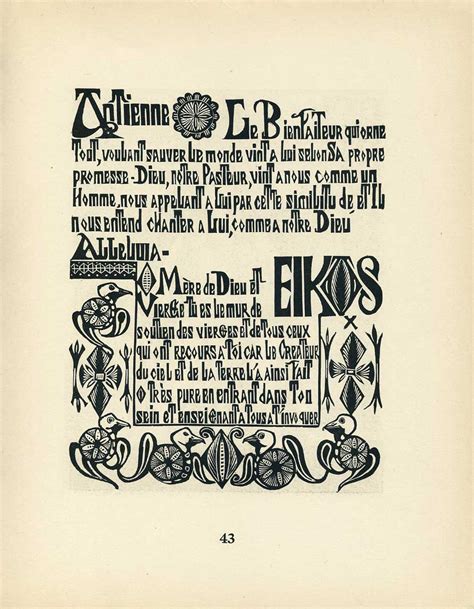 Antienne Le Bienfaiteur qui orne
Tout, voulant sauver le monde vint a Lui selon Sa propre
promesse - Dieu, nôtre Pasteur, vint a nous comme un
Homme, nous appelant a Lui par cette similitude et Il
nous entend chanter a Lui, comme a nôtre Dieu
Alleluia -
EIKOS X
Mère de Dieu et
Vierge tu es le mur de
soutien des vierges et de Tous ceux
qui ont recours a Toi car le Createur
du ciel et de la Terre L'a ainsi fait
O Très pure en entrant dans Ton
sein et enseignant a Tous a T'invoquer
43